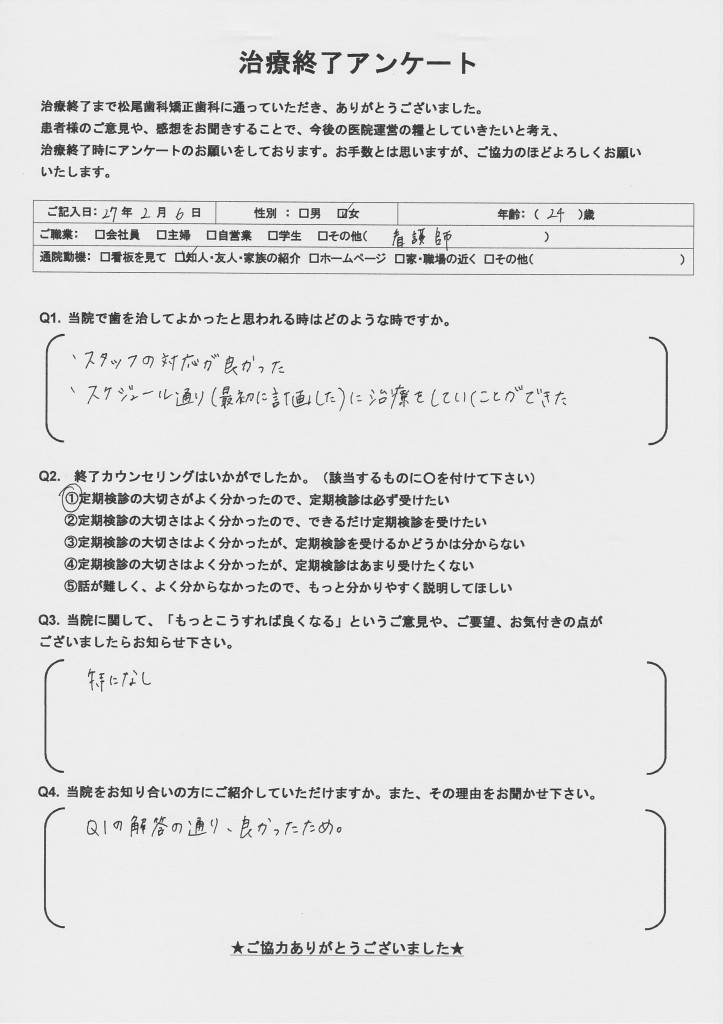 治療終了アンケート
治療終了まで松尾歯科矯正歯科に通っていただき、ありがとうございました。
患者様のご意見や、感想をお聞きすることで、今後の医院運営の糧としていきたいと考え、
治療終了時にアンケートのお願いをしております。お手数とは思いますが、ご協力のほどよろしくお願い
いたします。
ご記入日：27年 2月 6日 性別 ： □男 ☑女 年齢：（ 24 ）歳
ご職業： □会社員 □主婦 □自営業 □学生 □その他（ 看護師 ）
通院動機： □看板を見て ☑知人・友人・家族の紹介 □ホームページ □家・職場の近く □その他（ ）
Q1. 当院で歯を治してよかったと思われる時はどのような時ですか。
、スタッフの対応が良かった
、スケジュール通り(最初に計画した)に治療をしていくことができた
Q2. 終了カウンセリングはいかがでしたか。（該当するものに〇を付けて下さい）
①定期検診の大切さがよく分かったので、定期検診は必ず受けたい
②定期検診の大切さはよく分かったので、できるだけ定期検診を受けたい
③定期検診の大切さはよく分かったが、定期検診を受けるかどうかは分からない
④定期検診の大切さはよく分かったが、定期検診はあまり受けたくない
⑤話が難しく、よく分からなかったので、もっと分かりやすく説明してほしい
Q3. 当院に関して、「もっとこうすれば良くなる」というご意見や、ご要望、お気付きの点が
ございましたらお知らせ下さい。
特になし
Q4. 当院をお知り合いの方にご紹介していただけますか。また、その理由をお聞かせ下さい。
Q1の解答の通り、良かったため。
★ご協力ありがとうございました★